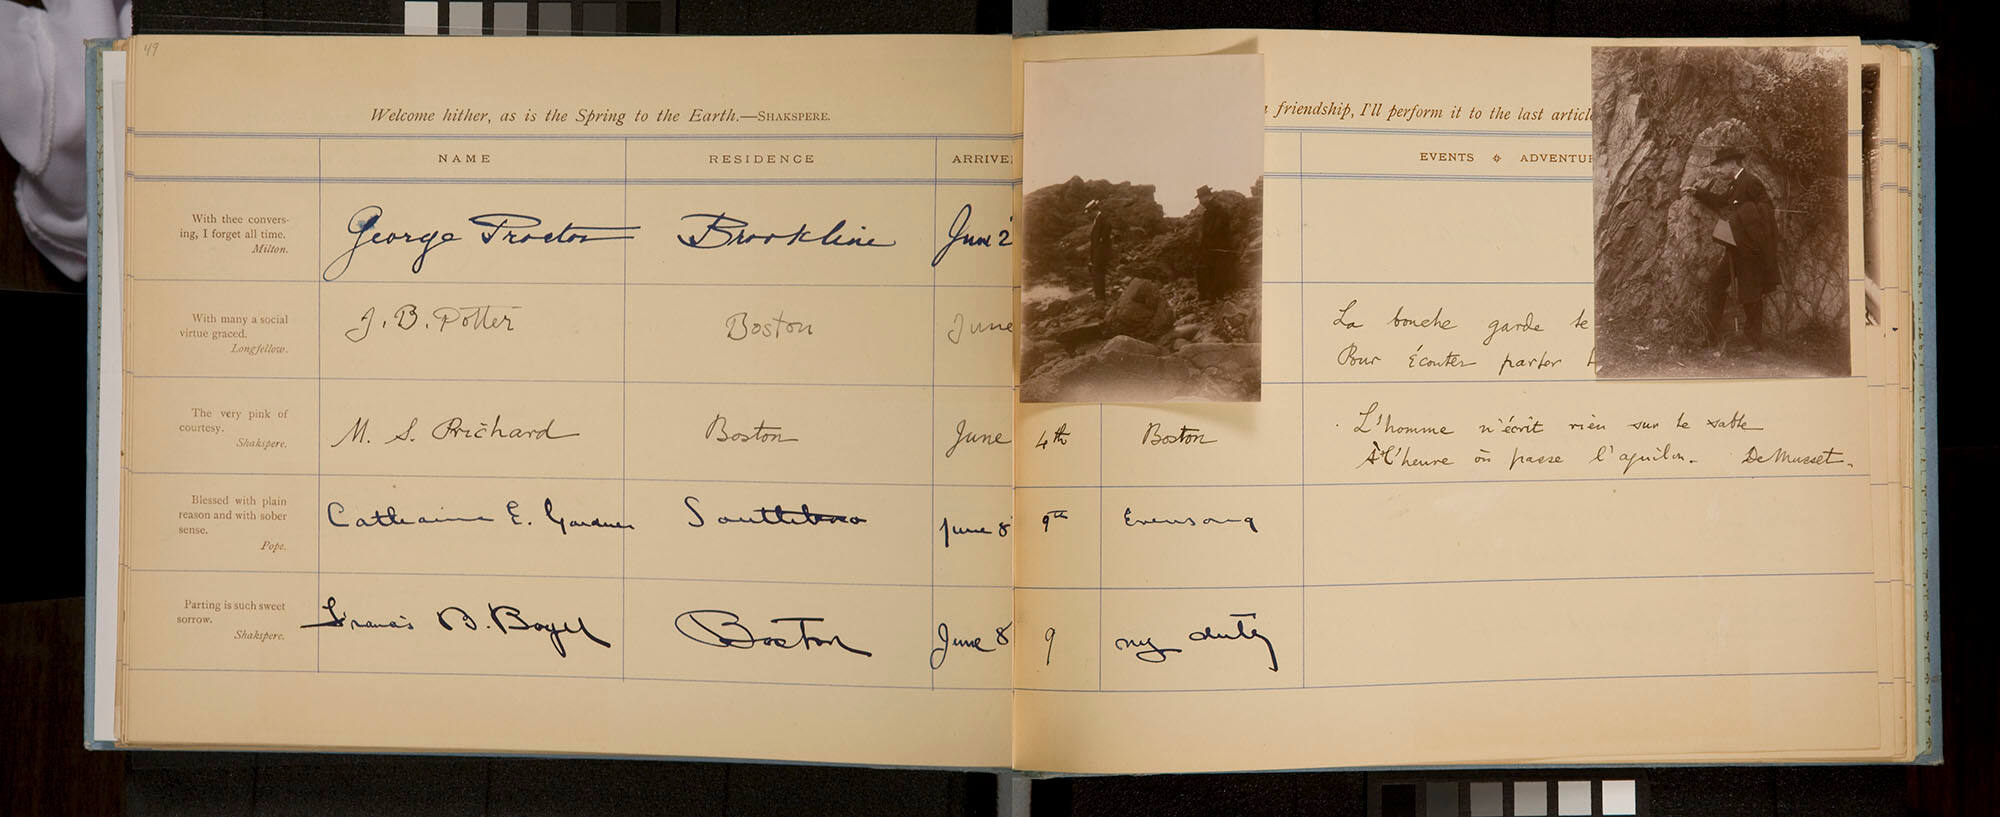 49
Welcome hither, as is the Spring to the Earth.—SHAKSPERE.
NAME RESIDENCE ARRIVE
With thee convers-
ing, I forget all time.
Milton.
George Proctor Brookline June 2
With many a social
virtue graced.
Longfellow.
J. B. Potter Boston June
The very pink of
courtesy.
Shakspere.
M. S. Prichard Boston June
Blessed with plain
reason and with sober
sense.
Pope.
Catharine E. Gardner Southboro June 8
Parting is such sweet
sorrow.
Shakspere.
Francis B. Boyd Boston June 8
friendship, I'll perform it to the last article
EVENTS ADVENTUR
La bouche garde le
Pour écouter parler
4th Boston L'homme n'écrit rien sur le sable
À l'heure où passe l'aquilon. De Musset.
9th Evensong
9 my duty